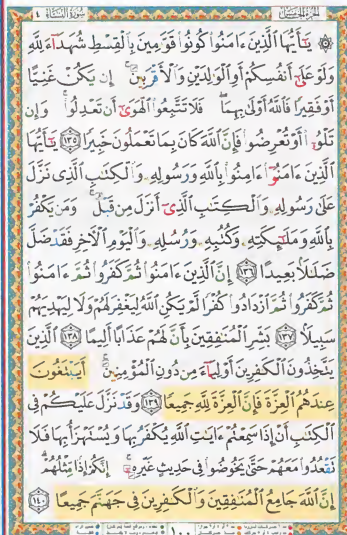 الجزء الخامس سورة النساء ٤
۞ يَـٰٓأَيُّهَا ٱلَّذِينَ ءَامَنُوا۟ كُونُوا۟ قَوَّٰمِينَ بِٱلْقِسْطِ شُهَدَآءَ لِلَّهِ
وَلَوْ عَلَىٰٓ أَنفُسِكُمْ أَوِ ٱلْوَٰلِدَيْنِ وَٱلْأَقْرَبِينَ ۚ إِن يَكُنْ غَنِيًّا
أَوْ فَقِيرًا فَٱللَّهُ أَوْلَىٰ بِهِمَا ۖ فَلَا تَتَّبِعُوا۟ ٱلْهَوَىٰٓ أَن تَعْدِلُوا۟ ۚ وَإِن
تَلْوُۥٓا۟ أَوْ تُعْرِضُوا۟ فَإِنَّ ٱللَّهَ كَانَ بِمَا تَعْمَلُونَ خَبِيرًا ١٣٥ يَـٰٓأَيُّهَا
ٱلَّذِينَ ءَامَنُوٓا۟ ءَامِنُوا۟ بِٱللَّهِ وَرَسُولِهِۦ وَٱلْكِتَـٰبِ ٱلَّذِى نَزَّلَ
عَلَىٰ رَسُولِهِۦ وَٱلْكِتَـٰبِ ٱلَّذِىٓ أَنزَلَ مِن قَبْلُ ۚ وَمَن يَكْفُرْ
بِٱللَّهِ وَمَلَـٰٓئِكَتِهِۦ وَكُتُبِهِۦ وَرُسُلِهِۦ وَٱلْيَوْمِ ٱلْـَٔاخِرِ فَقَدْ ضَلَّ
ضَلَـٰلًۢا بَعِيدًا ١٣٦ إِنَّ ٱلَّذِينَ ءَامَنُوا۟ ثُمَّ كَفَرُوا۟ ثُمَّ ءَامَنُوا۟
ثُمَّ كَفَرُوا۟ ثُمَّ ٱزْدَادُوا۟ كُفْرًا لَّمْ يَكُنِ ٱللَّهُ لِيَغْفِرَ لَهُمْ وَلَا لِيَهْدِيَهُمْ
سَبِيلًۢا ١٣٧ بَشِّرِ ٱلْمُنَـٰفِقِينَ بِأَنَّ لَهُمْ عَذَابًا أَلِيمًا ١٣٨ ٱلَّذِينَ
يَتَّخِذُونَ ٱلْكَـٰفِرِينَ أَوْلِيَآءَ مِن دُونِ ٱلْمُؤْمِنِينَ ۚ أَيَبْتَغُونَ
عِندَهُمُ ٱلْعِزَّةَ فَإِنَّ ٱلْعِزَّةَ لِلَّهِ جَمِيعًا ١٣٩ وَقَدْ نَزَّلَ عَلَيْكُمْ فِى
ٱلْكِتَـٰبِ أَنْ إِذَا سَمِعْتُمْ ءَايَـٰتِ ٱللَّهِ يُكْفَرُ بِهَا وَيُسْتَهْزَأُ بِهَا فَلَا
تَقْعُدُوا۟ مَعَهُمْ حَتَّىٰ يَخُوضُوا۟ فِى حَدِيثٍ غَيْرِهِۦٓ ۚ إِنَّكُمْ إِذًا مِّثْلُهُمْ ۗ
إِنَّ ٱللَّهَ جَامِعُ ٱلْمُنَـٰفِقِينَ وَٱلْكَـٰفِرِينَ فِى جَهَنَّمَ جَمِيعًا ١٤٠
١٠٠